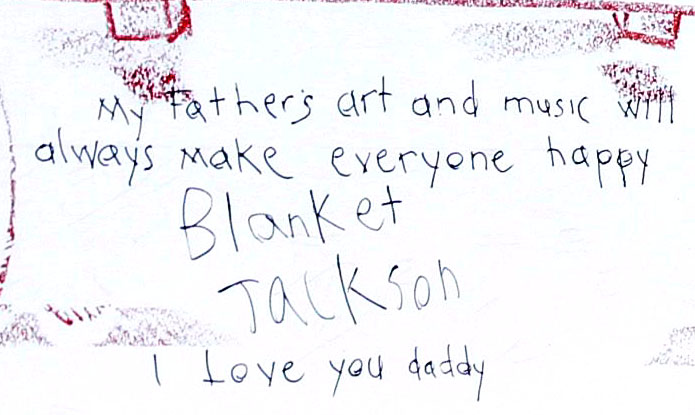 My Father's art and music will
always make everyone happy
Blanket
Jackson
I Love you daddy